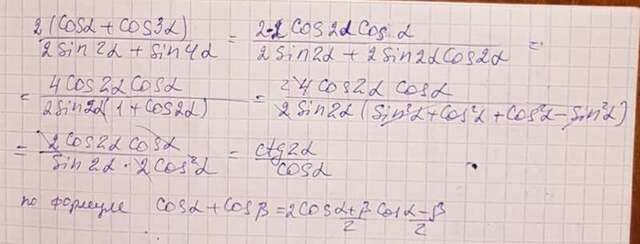 2(cosα + cos3α) / 2sin2α + sin4α = 2·2cos2α cosα / 2sin2α + 2sin2αcos2α =
= 4cos2α cosα / 2sin2α(1 + cos2α) = 2 4cos2α cosα / 2sin2α(sin²α + cos²α + cos²α − sin²α)
= 2cos2α cosα / sin2α · 2cos²α = ctg2α / cosα
по формуле cosα + cosβ = 2cos α+β/2 cos α−β/2